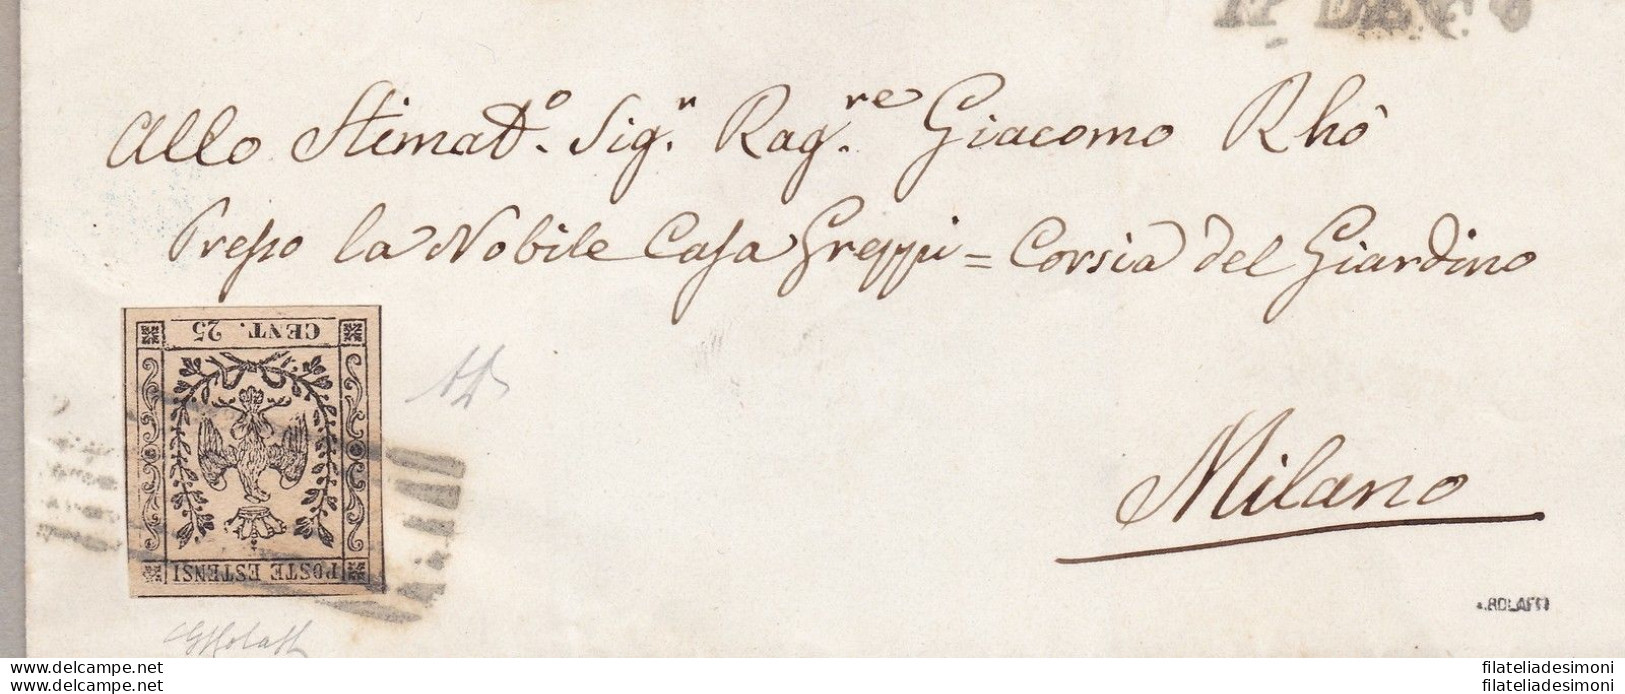 Allo Stimat.º Sig.r Rag.re Giacomo Rhò
Presso la Nobile Casa Greppi = Corsia del Giardino
CENT. 25
POSTE ESTENSI
Milano
A.BOLAFFI
www.delcampe.net
www.delcampe.net
filateliadesimoni
filateliadesimoni